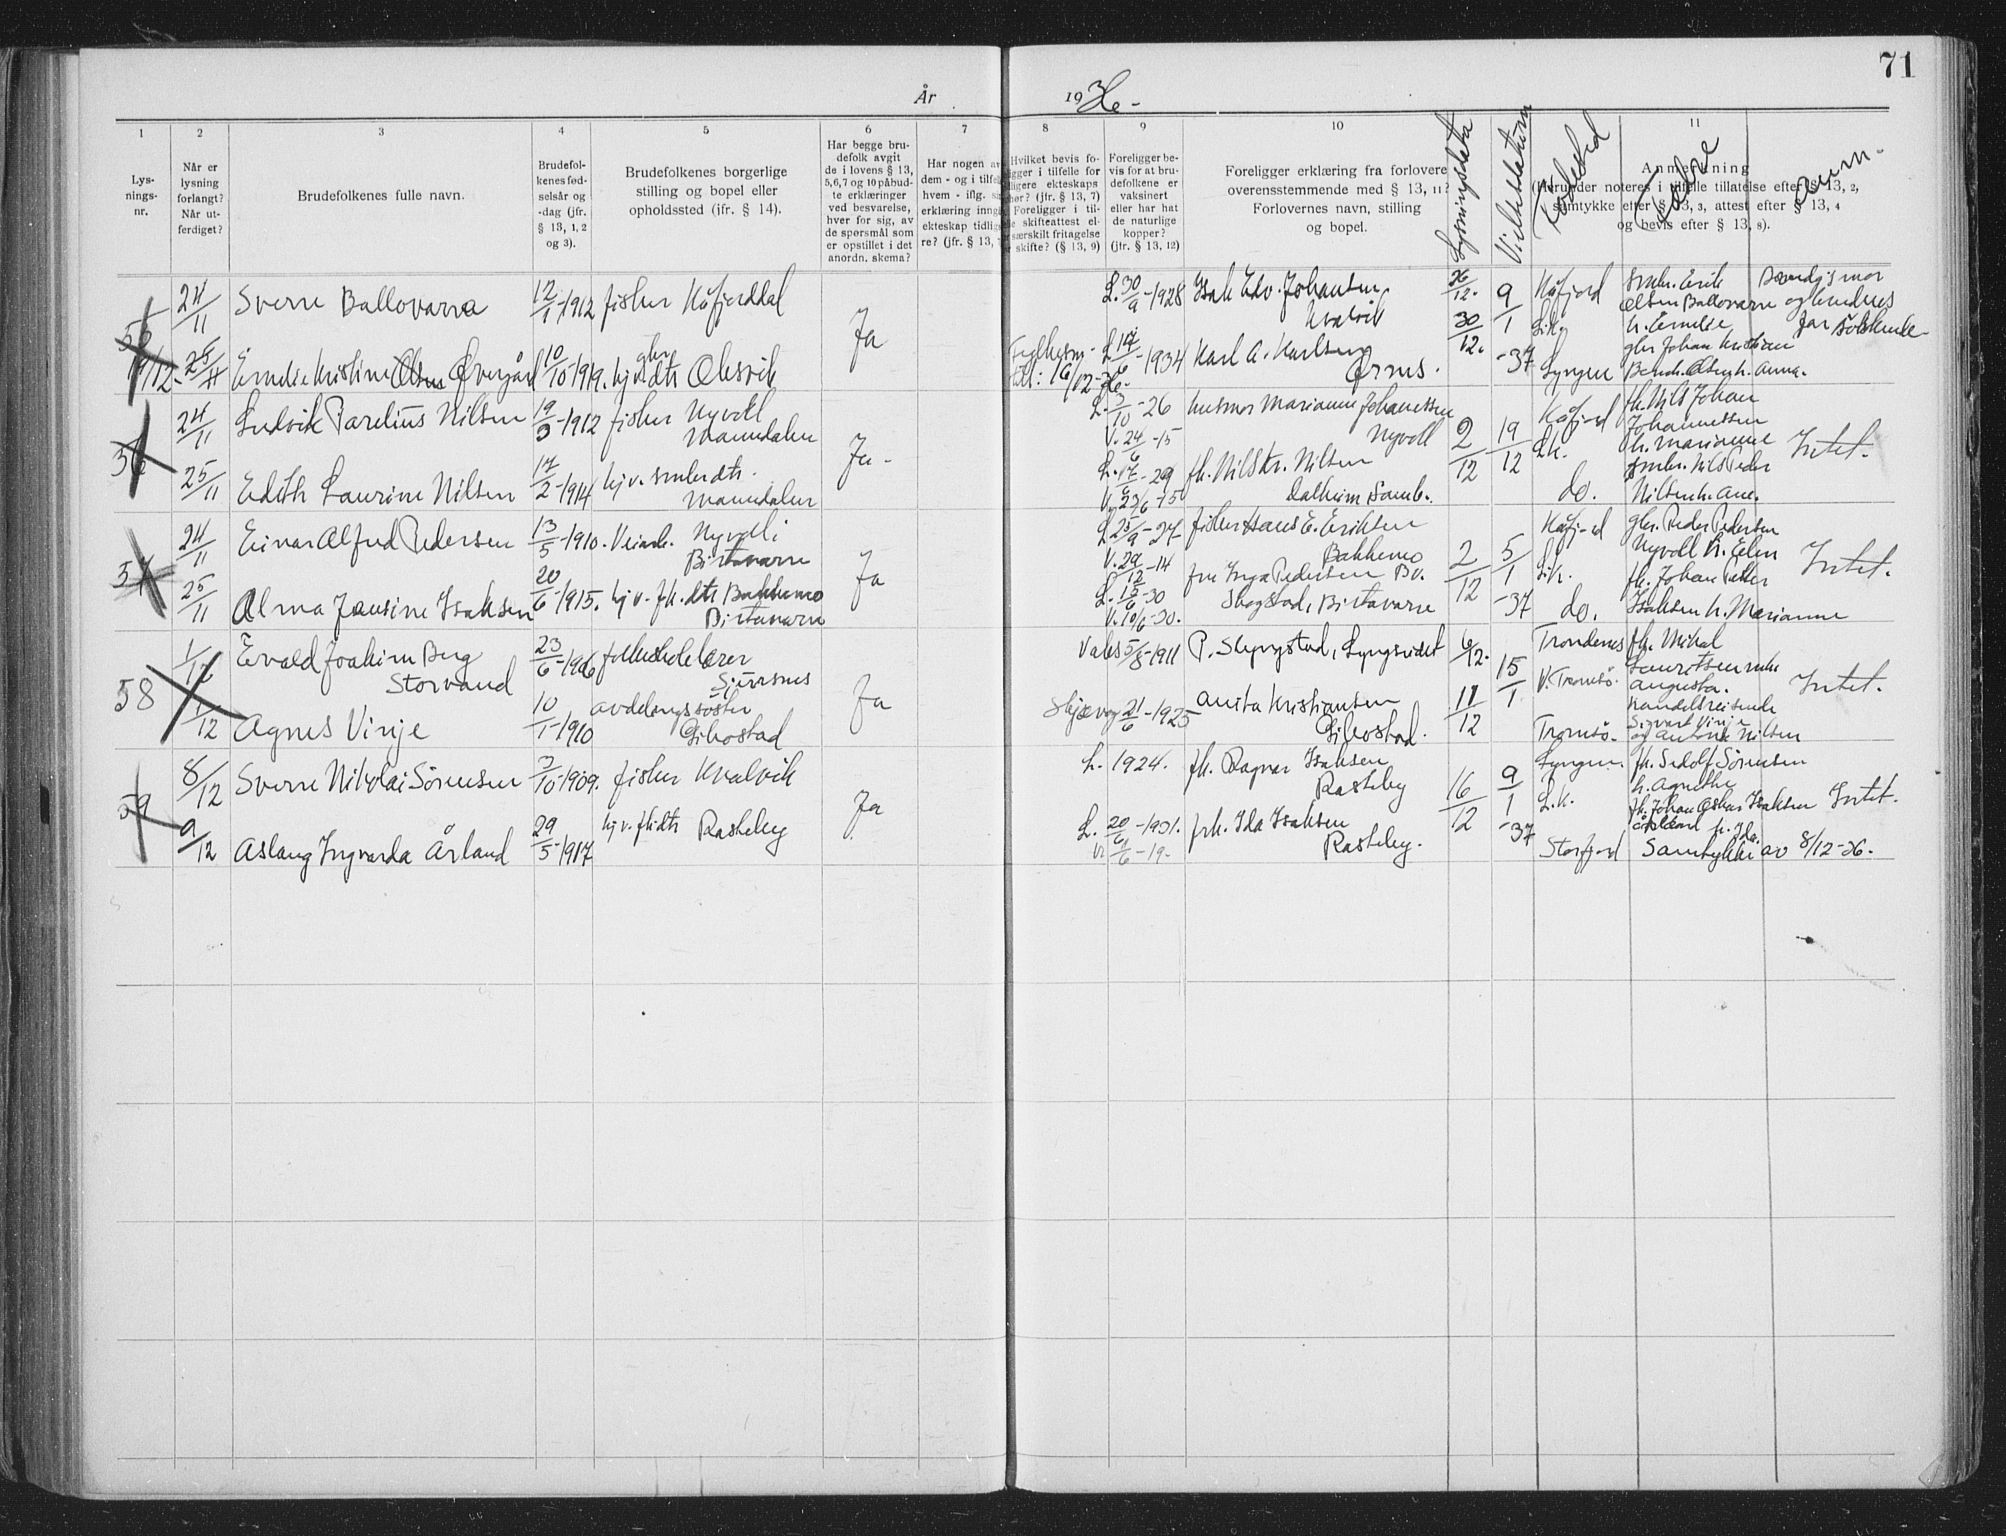 71
År 1936-
1
2
3
4
5
6
7
8
9
10
11
Lys-
nings-
nr.
Når er
lysning
forlangt?
Når ut-
ferdiget?
Brudefolkenes fulle navn.
Brudefol-
kenes fød-
selsår og
-dag (jfr.
§ 13, 1, 2
og 3).
Brudefolkenes borgerlige
stilling og bopel eller
opholdssted (jfr. § 14).
Har begge bru-
defolk avgit
de i lovens § 13,
5, 6, 7 og 10 påbud-
te erklæringer
ved besvarelse,
hver for sig, av
de spørsmål som
er opstillet i det
anordn. skema?
Har nogen av
dem - og i tilfel
hvem - iflg. s
erklæring inngå
ekteskap tidlig
re? (jfr. § 13,
Hvilket bevis fo-
ligger i tilfelle for
ligere ekteskaps
hør? (jfr. § 13, 7)
Foreligger i til-
le skifteattest el-
særskilt fritagelse
skifte? (§ 13, 9)
Foreligger be-
vis for at bru-
defolkene er
vaksinert
eller har hat
de naturlige
kopper?
(jfr. § 13, 12)
Foreligger erklæring fra forlovere
overensstemmende med § 13, 11?
Forlovernes navn, stilling
og bopel.
Lysningsdata
Vielsesdatum
Fødested
Anmerkning
(Herunder noteres i tilfelle tillatelse efter § 13, 2,
samtykke efter § 13, 3, attest efter § 13, 4
og bevis efter § 13, 8).
Anm.
24/11 Sverre Ballovarra 12/1-1912 fisker Kåfjorddal
Ja
L. 30/9-1928 Isak Edv. Johansen Kvalvik
26/12. 30/12. 9/1-37
Kåfjord L.k. smbr. Erik Olsen Ballovarre h. Emelie
Brudgs mor og brudens far
25/11 Emelie Kristine Olsen Øvergård 10/10-1919. hjv. gbr dtr Olsvik
16/12-36. 1934 Karl A. Karlsen Ørnes.
Lyngen gbr Johan Kristian Bend. Olsen h. Anna.
56 24/11 Ludvik Parelius Nilsen 19/3-1912 fisker Nyvoll Manndalen
Ja-
L. 5/10-26 V. 24/6-15 husmor Marianne Johannessen Nyvoll
2/12 19/12
Kåfjord L.k. fh. Nils Johan Johannessen h. Marianne
Intet.
25/11 Edith Laurine Nilsen 17/2-1914 hjv. smbrdtr. Manndalen
L. 17/6-29 V. 23/6-15 fh. Nils Kr. Nilsen Dalheim Samb.
do. smbr. Nils Peder Nilsen h. Ane.
57 24/11 Einar Alfred Pedersen 13/5-1910. Veiarb. Nyvoll i Birtavarre
Ja
L. 25/9-27 V. 29/12-14 fisker Hans E. Eriksen Bakkemo
2/12 5/1-37
Kåfjord L.k. gbr. Peder Pedersen Nyvoll h. Elen
Intet.
25/11 Alma Jensine Isaksen 20/6-1915. hjv. fh. dtr Bakkemo Birtavarre
L. 15/6-30 V. 10/6-30. fru Inga Pedersen Skogstad, Birtavarre
do. fh. Johan Peder Isaksen h. Marianne
58 1/12 Evald Joakim Berg Storvand 23/6-1906 folkeskolelærer Sjursnes
Ja
Vaks 5/8-1911 P. Slyngstad, Lyngseidet
6/12. 11/12 15/1
Trondenes V. Tromsø. fh. Mikal Lauritsen Augusta.
Intet.
1/12 Agnes Vinje 10/1-1910 avdelingssøster Gibostad
Skjervøy 21/6-1925 Anita Kristiansen Gibostad.
Tromsø. handelsreisende Sigvart Vinje og Antonie Nilsen
59 8/12 Sverre Nikolai Sørensen 3/10-1909. fisker Kvalvik
Ja
L. 1924. fh. Ragnar Isaksen Rasteby
16/12 9/1-37
Lyngen L.k. fh. Sedolf Sørensen h. Agnethe
Intet.
9/12 Aslaug Ingvarda Årland 29/5-1917 hjv. fhdtr Rasteby
L. 20/6-1931. V. 9/6-19- frk. Ida Isaksen Rasteby.
Storfjord fh. Johan Oskar Isaksen Årland h. Ida.
Samtykke av 8/12-36.